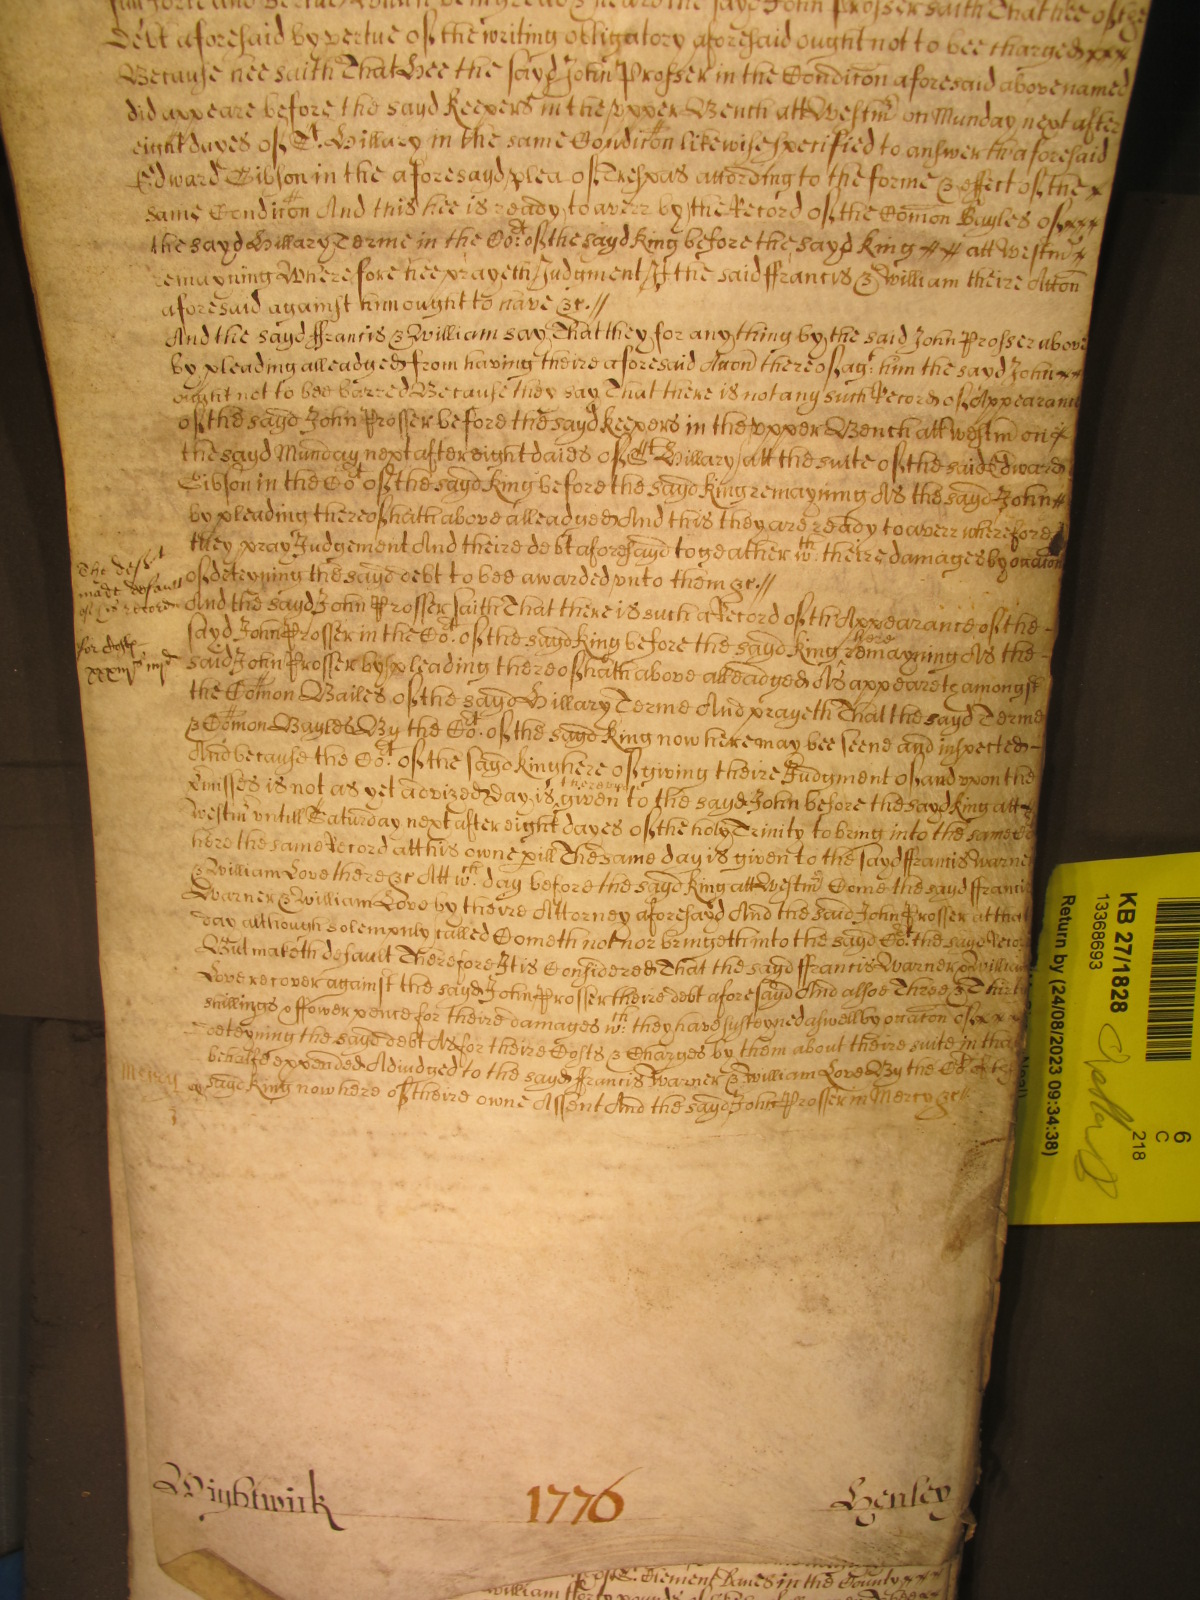 full force and vertue, Which being read & heard the sayd John Prosser saith That hee of the
Debt aforesaid by vertue of the writing obligatory aforesaid ought not to bee charged
Because hee saith That Hee the sayd John Prosser in the Condicon aforesaid abovenamed
did appeare before the sayd keepers in the upper Bench att Westmr on Munday next after
eight dayes of St. Hillary in the same Condicon likewise specified to answer th aforesaid
Edward Gibson in the aforesayd plea of Trespas according to the forme & effect of the
same Condicon And this hee is ready to averr by the Record of the Comon Bayles of
the sayd Hillary Terme in the Cort. of the sayd King before the sayd king att Westmr
remayning Wherefore hee prayeth Judgment If the said ffrancis & William theire Accon
aforesaid against him ought to have &c.//
And the sayd ffrancis & William say That they for any thing by the said John Prosser above
by pleading alleadged from having theire aforesaid Accon thereof agt. him the sayd John
ought not to bee barred Because they say That there is not any such Record of Appearance
of the sayd John Prosser before the sayd keepers in the upper Bench att Westmr on
the sayd Munday next after eight daies of St. Hillary att the suite of the said Edward
Gibson in the Cort of the sayd King before the sayd king remayning As the sayd John
by pleading thereof hath above alleadged And this they are ready to averr wherefore
they pray Judgement And theire debt aforesayd togeather wth. theire damages by occacon
of deteyning the sayd debt to bee awarded unto them &c.//
The deft
made default
of his record
And the sayd John Prosser saith That there is such a Record of th Appearance of the
sayd John Prosser in the Cort. of the sayd King before the sayd king here remayning As the
for costs
said John Prosser by pleading thereof hath above alleadged As appeareth amongst
the Comon Bailes of the sayd Hillary Terme And prayeth That the sayd Terme
& Comon Bayles By the Cort. of the sayd King now here may bee seene and inspected
And because the Cort. of the sayd King here of giving theire Judgment of and upon the
Pmisses is not as yet advized Day is thereupon given to the sayd John before the sayd king att
Westmr untill Saturday next after eight dayes of the holy Trinity to bring into the same Cort
here the same Record att his owne pill The same day is given to the sayd ffrancis Warner
& William Love there &c Att wch. day before the sayd king att Westmr Come the sayd ffrancis
Warner & William Love by theire Attorney aforesayd And the said John Prosser at that
day although solempnly called Cometh not nor bringeth into the sayd Cort. the sayd Record
But maketh default Therefore It is Considered That the sayd ffrancis Warner & William
Love recover against the sayd John Prosser theire debt aforesayd And alsoe Three & Thirty
shillings & ffower pence for theire damages wch. they have susteyned aswell by occacon of
deteyning the sayd debt As for theire Costs & Charges by them about theire suite in that
behalfe expended Adiudged to the sayd ffrancis Warner & William Love By the Cort of the
Mercy
sayd King now here of theire owne Assent And the sayd John Prosser in Mercy &c
Wightwick 1776 Henley
St. Clement Danes in the County
William
KB 27/1828
13368693
Return by (24/08/2023 09:34:38)
6
C
218